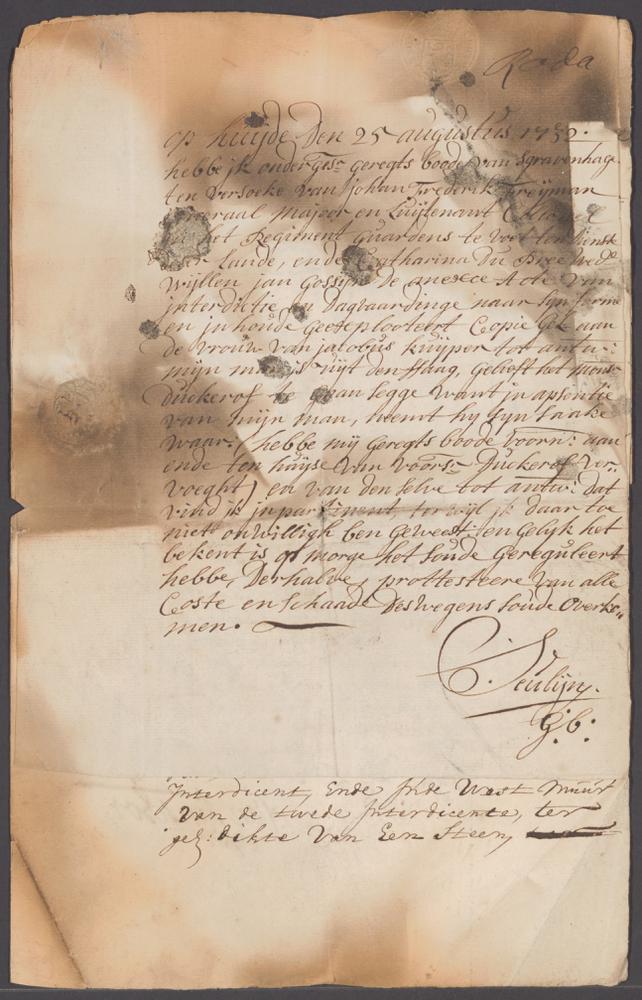 op huijde den 25 augustus 1732.
hebbe ik onderges: geregts boode van sgravenhage
ten versoeke van johan frederik freijman
generaal majoor en luijtenant Collonel
het Regiment guardens te voet ten dienste
Lande, ende Catharina du Pree wede
wijllen jan gossijn de anexce acte van
interdictie en dagvaardinge naar sijn forme
en in houde geeteplooteert Copie gel. aan
de vrouw van jacobus kuijper tot antw:
mijn man is uijt den Haag, gelieft tot mons:
Duckerof te gaan segge want in apsentie
van mijn man, neemt hij sijn saake
waar: / hebbe mij geregts boode voorn: aan
ende ten huijse van voors: Duckerof ver„
voeght) en van den selve tot antw: dat
vind ik jnpartinent, terwijl ik daar toe
niet onwilligh ben geweest en gelijk het
bekent is op morge het soude gereguleert
hebbe, derhalve prottesteere van alle
Coste en schaade deswegens soude overko„
men.
G:b:
Interdicent, ende sijde west muur
van de twede interdicente, ter
gel: dikte van een steen,